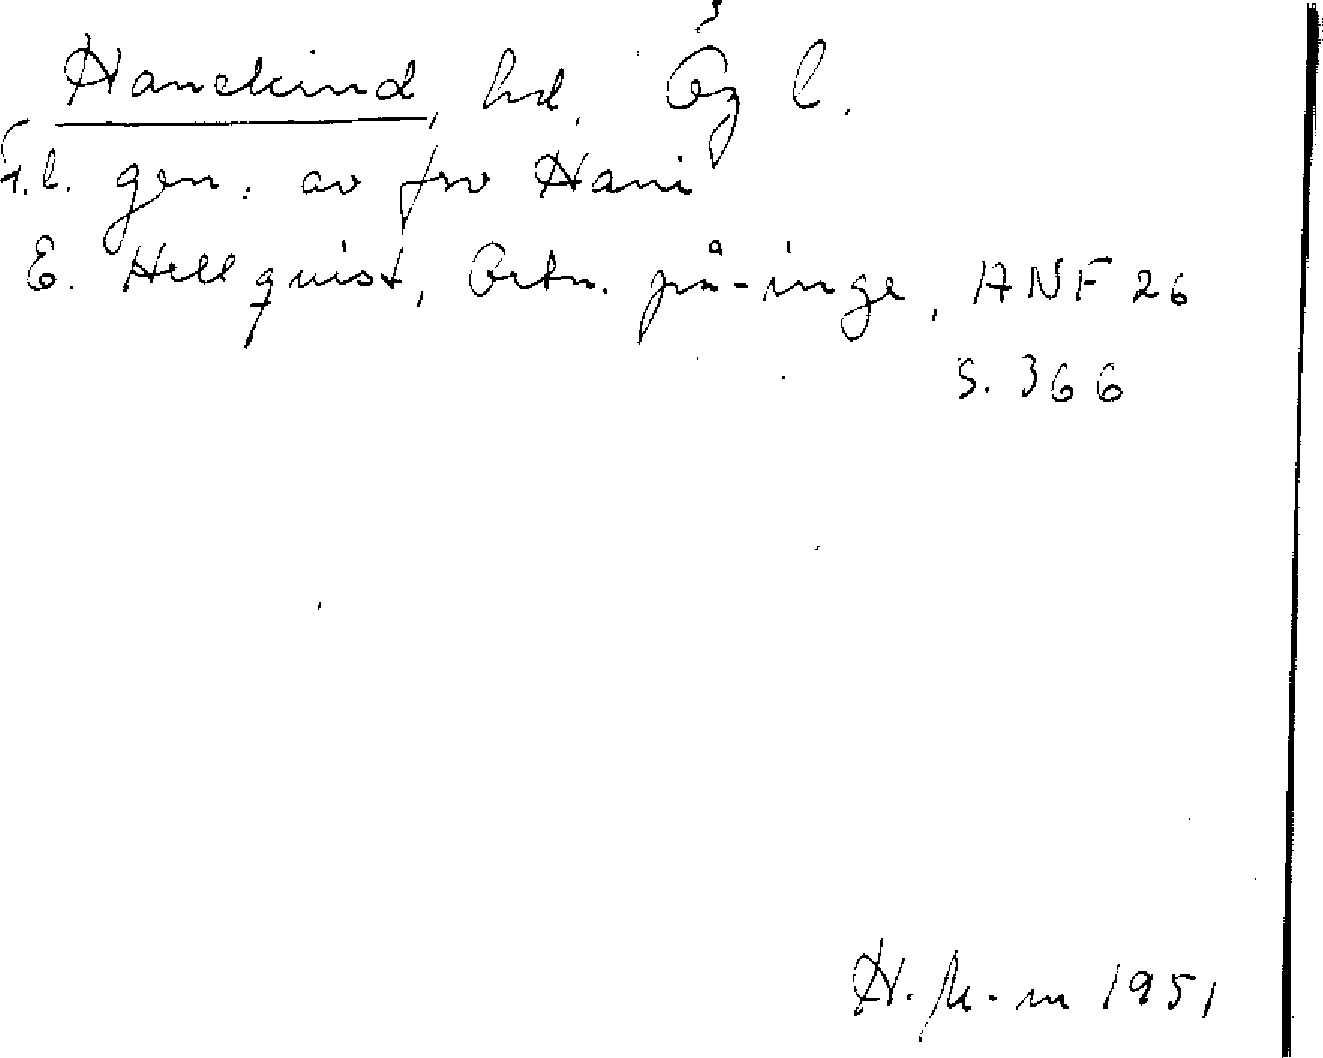 Hanekind, hd. Ög l.
F.l. gen. av fv Hani
E. Hellquist, Ortn. på -inge, ANF 26
s. 366
1951